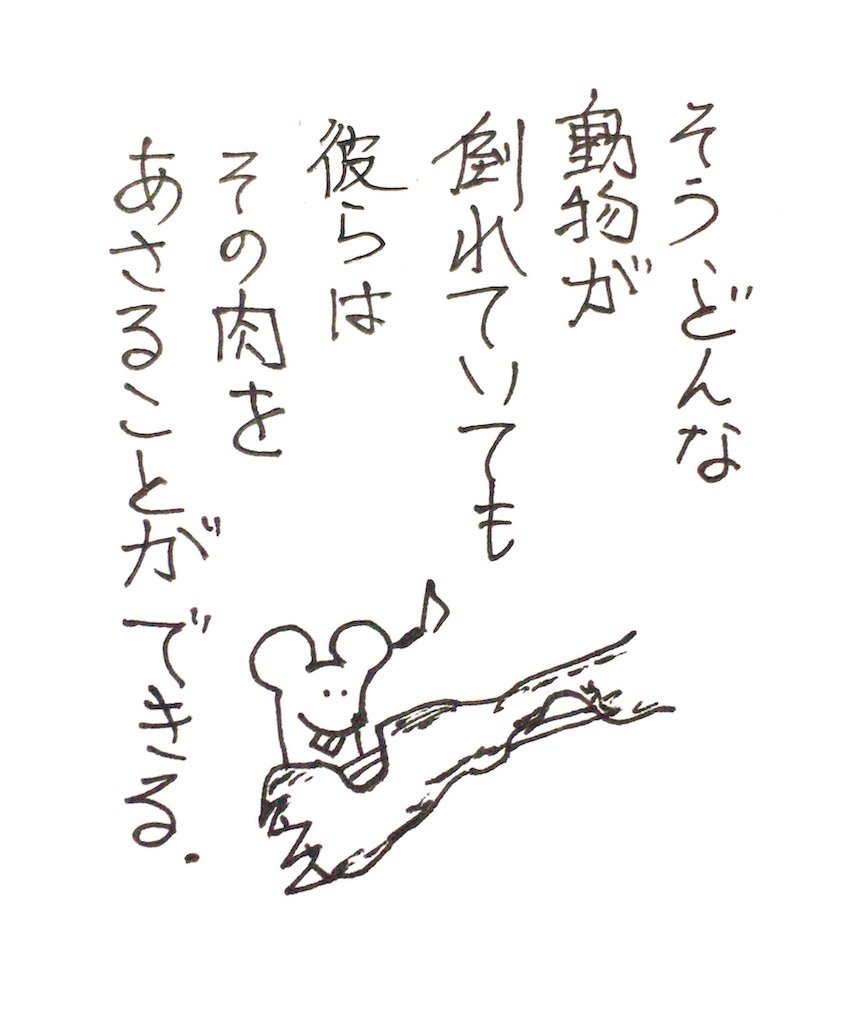 そう、どんな
動物が
倒れていても
彼らは
その肉を
あさることができる.